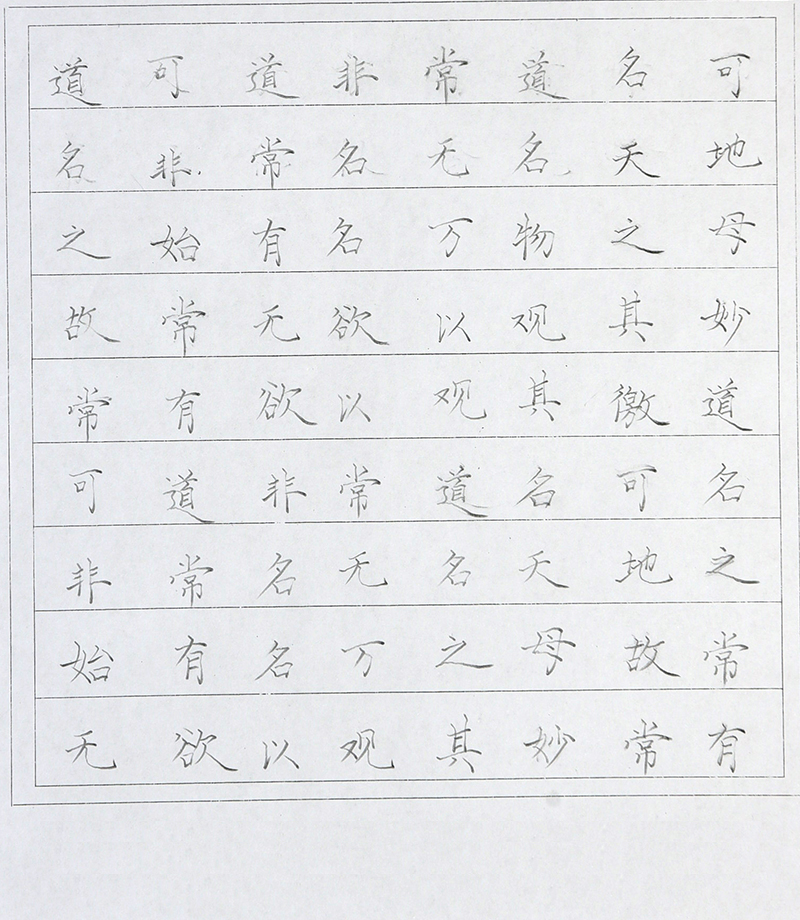 道可道非常道名可
名非常名无名天地
之始有名万物之母
故常无欲以观其妙
常有欲以观其徼道
可道非常道名可名
非常名无名天地之
始有名万之母故常
无欲以观其妙常有